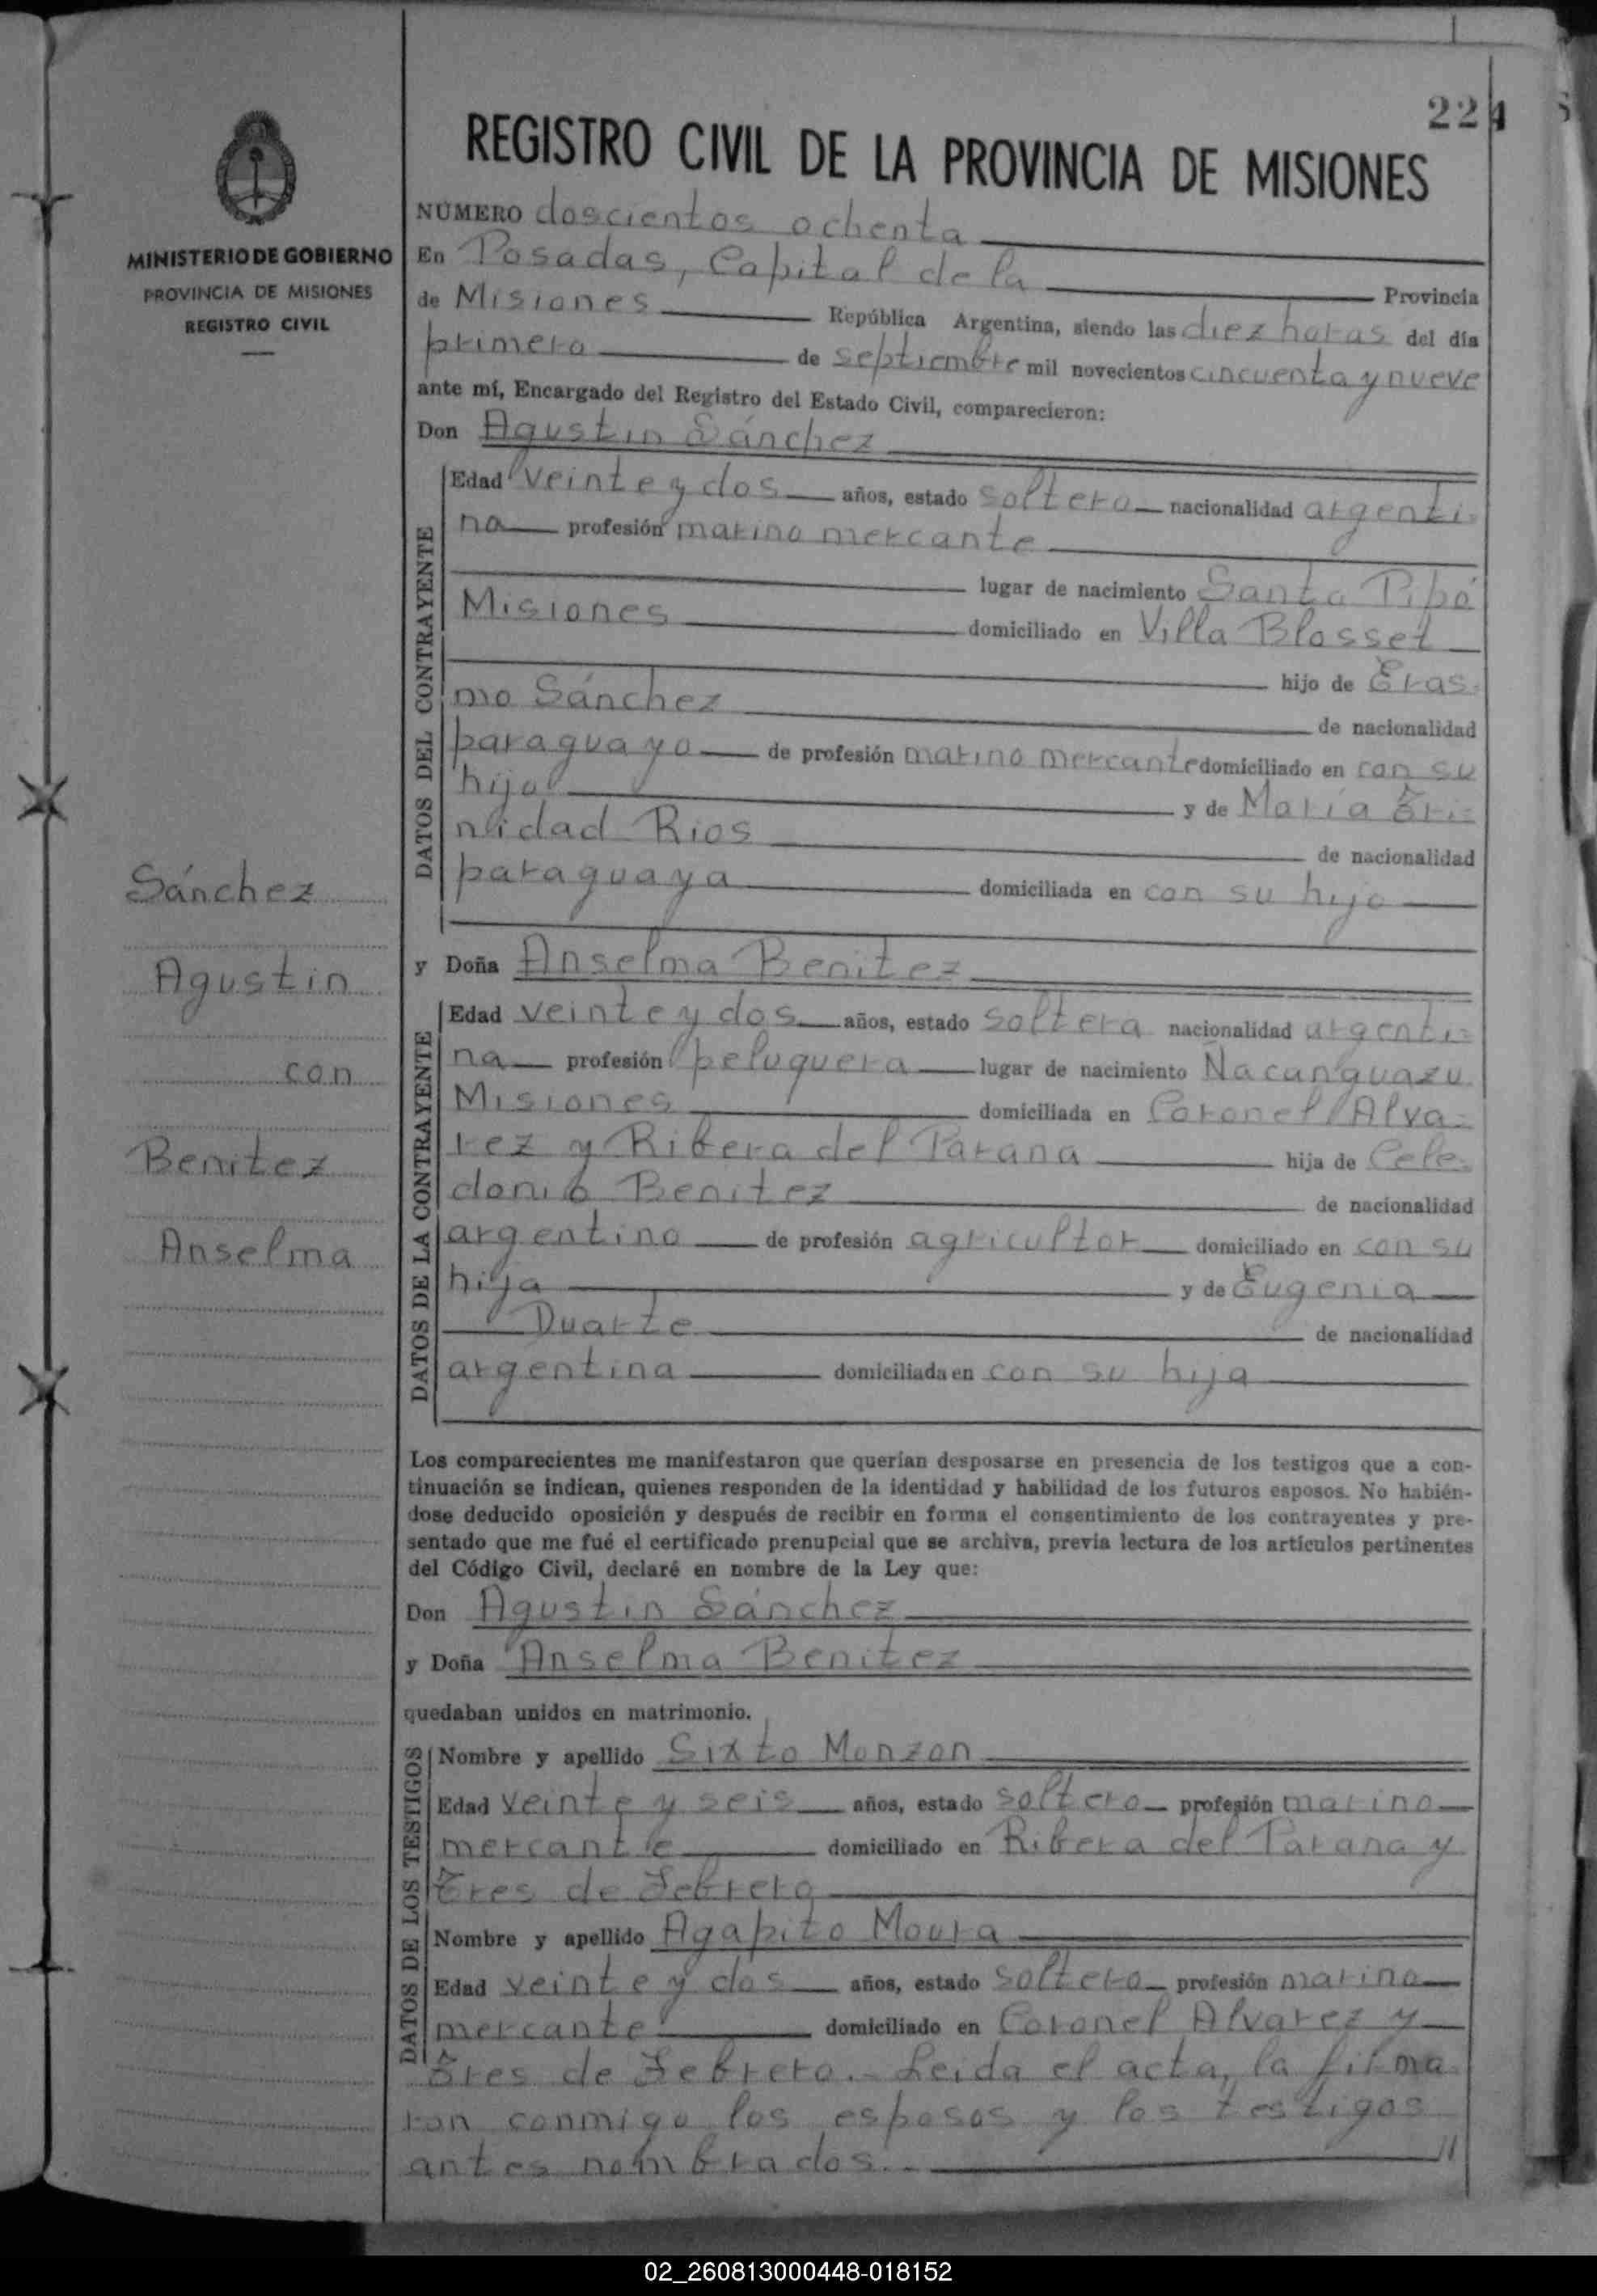 224
REGISTRO CIVIL DE LA PROVINCIA DE MISIONES
MINISTERIO DE GOBIERNO
PROVINCIA DE MISIONES
REGISTRO CIVIL
NÚMERO doscientos ochenta
En Posadas, Capital de la Provincia
de Misiones República Argentina, siendo las diez horas del día
primero de septiembre mil novecientos cincuenta y nueve
ante mí, Encargado del Registro del Estado Civil, comparecieron:
Don Agustin Sánchez
DATOS DEL CONTRAYENTE
Edad veinte y dos años, estado soltero nacionalidad argenti-
no profesión marino mercante
lugar de nacimiento Santo Pipó
Misiones domiciliado en Villa Blosset
hijo de Eras-
mo Sánchez de nacionalidad
paraguayo de profesión marino mercante domiciliado en con su
hijo y de María Tri-
nidad Rios de nacionalidad
paraguaya domiciliada en con su hijo
Sánchez
Agustin
con
Benitez
Anselma
y Doña Anselma Benitez
DATOS DE LA CONTRAYENTE
Edad veinte y dos años, estado soltera nacionalidad argenti-
na profesión peluquera lugar de nacimiento Ñacanguazu
Misiones domiciliada en Coronel Alva-
rez y Ribera del Parana hija de Cele-
donio Benitez de nacionalidad
argentino de profesión agricultor domiciliado en con su
hija y de Eugenia
Duarte de nacionalidad
argentina domiciliada en con su hija
Los comparecientes me manifestaron que querían desposarse en presencia de los testigos que a con-
tinuación se indican, quienes responden de la identidad y habilidad de los futuros esposos. No habién-
dose deducido oposición y después de recibir en forma el consentimiento de los contrayentes y pre-
sentado que me fué el certificado prenupcial que se archiva, previa lectura de los artículos pertinentes
del Código Civil, declaré en nombre de la Ley que:
Don Agustin Sánchez
y Doña Anselma Benitez
quedaban unidos en matrimonio.
DATOS DE LOS TESTIGOS
Nombre y apellido Sixto Monzon
Edad veinte y seis años, estado soltero profesión marino
mercante domiciliado en Ribera del Parana y
Tres de Febrero
Nombre y apellido Agapito Moura
Edad veinte y dos años, estado soltero profesión marino
mercante domiciliado en Coronel Alvarez y
Tres de Febrero.- Leida el acta, la firma-
ron conmigo los esposos y los testigos
antes nombrados.- //
02_260813000448-018152